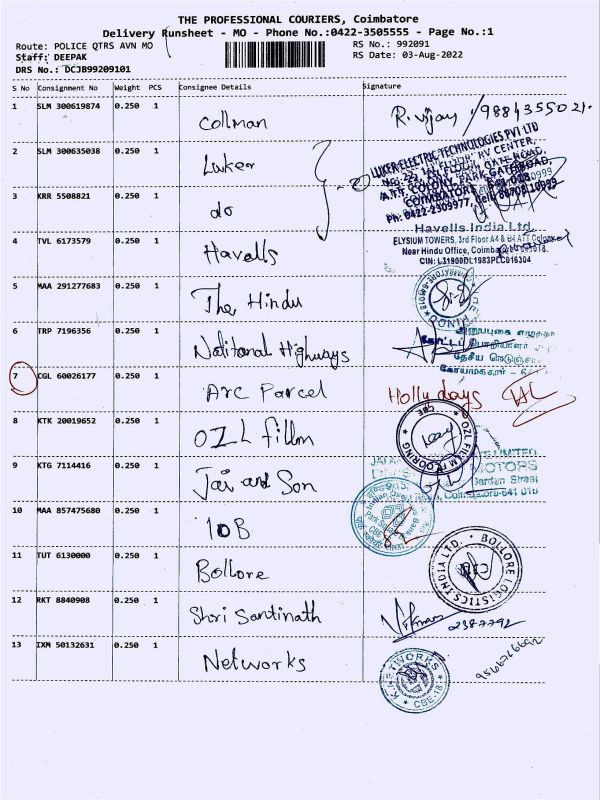 THE PROFESSIONAL COURIERS, Coimbatore
Delivery Runsheet - MO - Phone No.:0422-3505555 - Page No.:1
Route: POLICE QTRS AVN MO
RS No.: 992091
Staff: DEEPAK
RS Date: 03-Aug-2022
DRS No.: DCJB99209101
S No Consignment No Weight PCS Consignee Details Signature
1 SLM 300619874 0.250 1 Collman R. Vijay / 9884355021.
2 SLM 300635038 0.250 1 Luker
LUKER ELECTRIC TECHNOLOGIES PVT LTD
COIMBATORE - 641 018
Ph: 0422-2309977,
3 KRR 5508821 0.250 1 do
4 TVL 6173579 0.250 1 Havells
Havells India Ltd.
ELYSIUM TOWERS, 3rd Floor A4 & B4 ATT Colony
Near Hindu Office, Coimbatore
CIN: L31900DL1983PLC016304
5 MAA 291277683 0.250 1 The Hindu
6 TRP 7196356 0.250 1 Nalitonal Highways
7 CGL 60026177 0.250 1 Arc Parcel Holly days
8 KTK 20019652 0.250 1 OZL fillm
OZL FILM FLOORING
CBE
9 KTG 7114416 0.250 1 Jai and Son
MOTORS
Coimbatore-641 018
10 MAA 857475680 0.250 1 IOB
11 TUT 6130000 0.250 1 Bollore
BOLLORE LOGISTICS INDIA LTD.
CJB
12 RKT 8840908 0.250 1 Shri Santinath 2387792
13 IXM 50132631 0.250 1 Networks
K NETWORKS
CBE-18